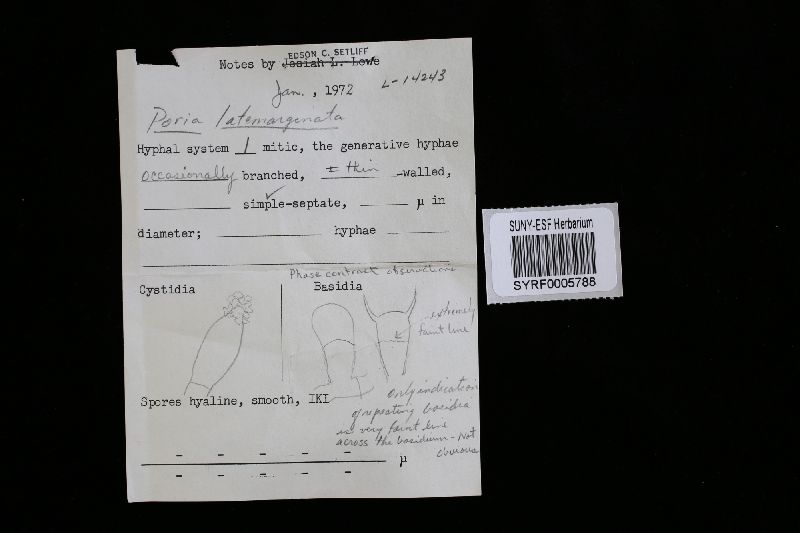 EDSON C. SETLIFF
Notes by Josiah L. Lowe
Jan., 1972 L-14243
Poria latemarginata
Hyphal system 1 mitic, the generative hyphae
occasionally branched, ± thin -walled,
simple-septate, µ in
diameter; hyphae
Phase contract observations
Cystidia Basidia
extremely
faint line
Spores hyaline, smooth, IKI
Only indication
of repeating basidia
is very faint line
across the basidium - Not
obvious
- - - - -
µ
- - - - -
SUNY-ESF Herbarium
SYRF0005788